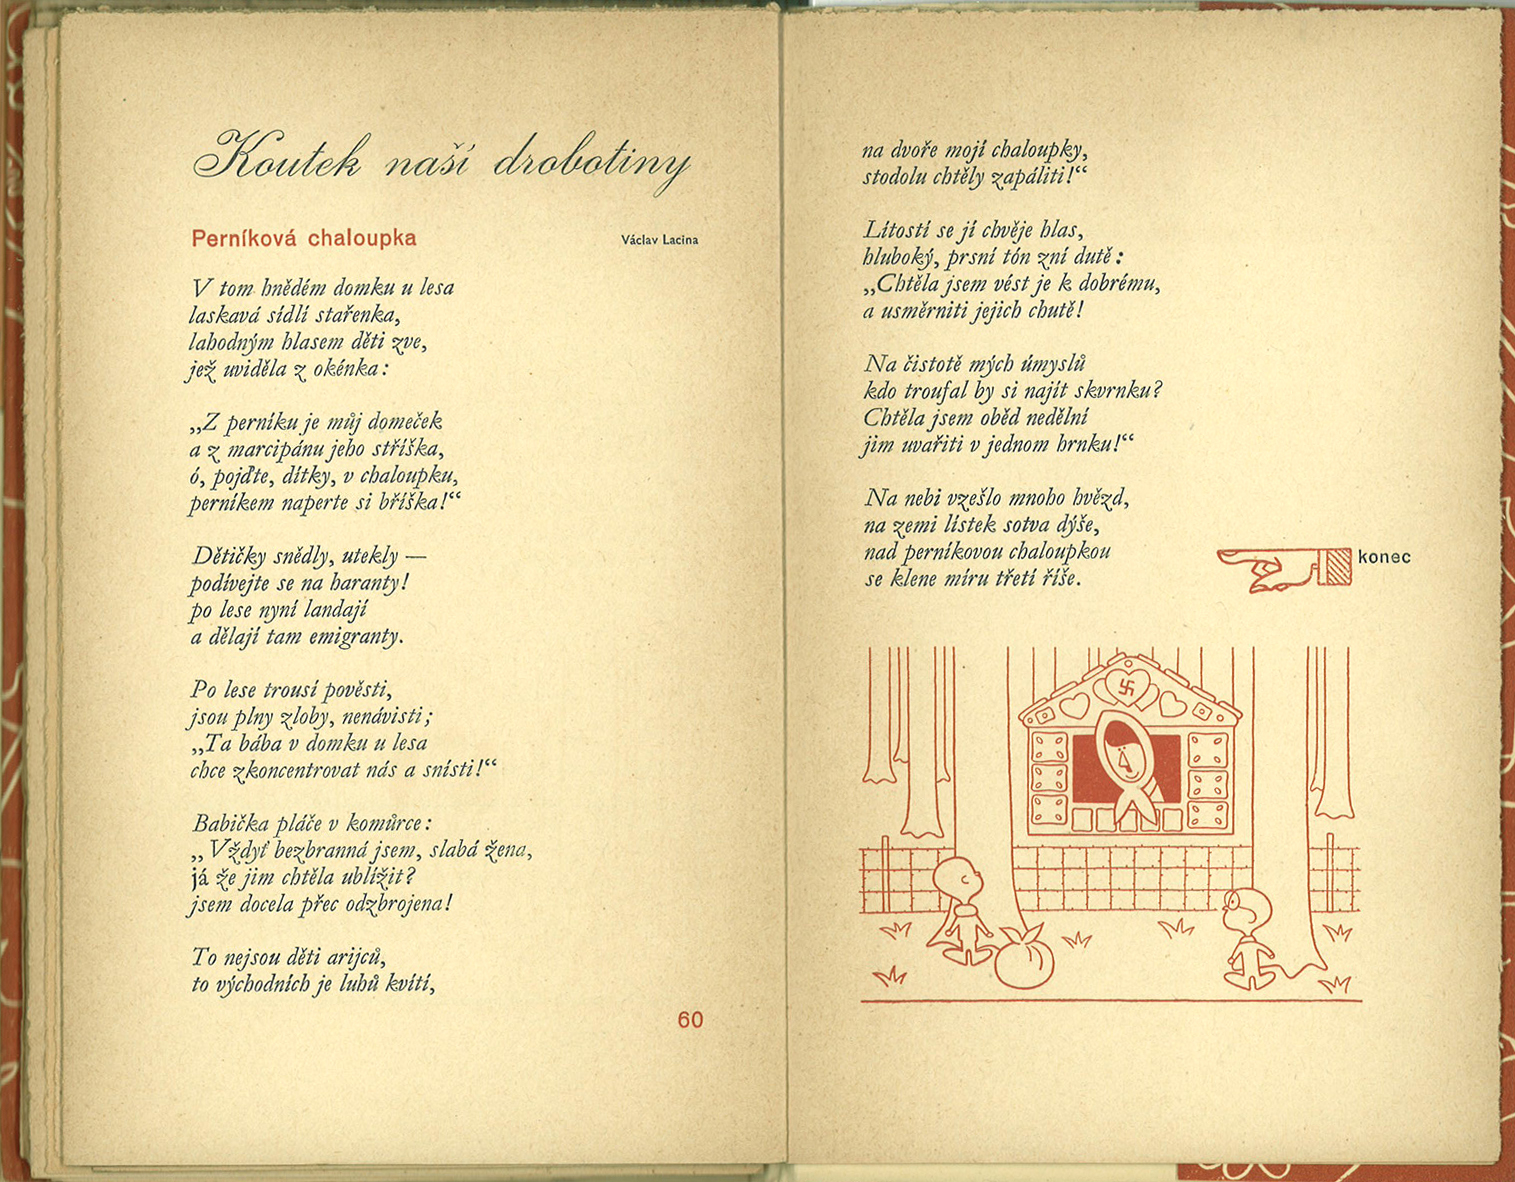 Koutek naší drobotiny
Perníková chaloupka
Václav Lacina
V tom hnědém domku u lesa
laskavá sídlí stařenka,
lahodným hlasem děti zve,
jež uviděla z okénka:
„Z perníku je můj domeček
a z marcipánu jeho stříška,
ó, pojďte, dítky, v chaloupku,
perníkem naperte si bříška!“
Dětičky snědly, utekly —
podívejte se na haranty!
po lese nyní landají
a dělají tam emigranty.
Po lese trousí pověsti,
jsou plny zloby, nenávisti;
„Ta bába v domku u lesa
chce zkoncentrovat nás a snísti!“
Babička pláče v komůrce:
„Vždyť bezbranná jsem, slabá žena,
já že jim chtěla ublížit?
jsem docela přec odzbrojena!
To nejsou děti arijců,
to východních je luhů kvítí,
60
na dvoře mojí chaloupky,
stodolu chtěly zapáliti!“
Lítostí se jí chvěje hlas,
hluboký, prsní tón zní dutě:
„Chtěla jsem vést je k dobrému,
a usměrniti jejich chutě!
Na čistotě mých úmyslů
kdo troufal by si najít skvrnku?
Chtěla jsem oběd nedělní
jim uvařiti v jednom hrnku!“
Na nebi vzešlo mnoho hvězd,
na zemi lístek sotva dýše,
nad perníkovou chaloupkou
se klene míru třetí říše.
konec